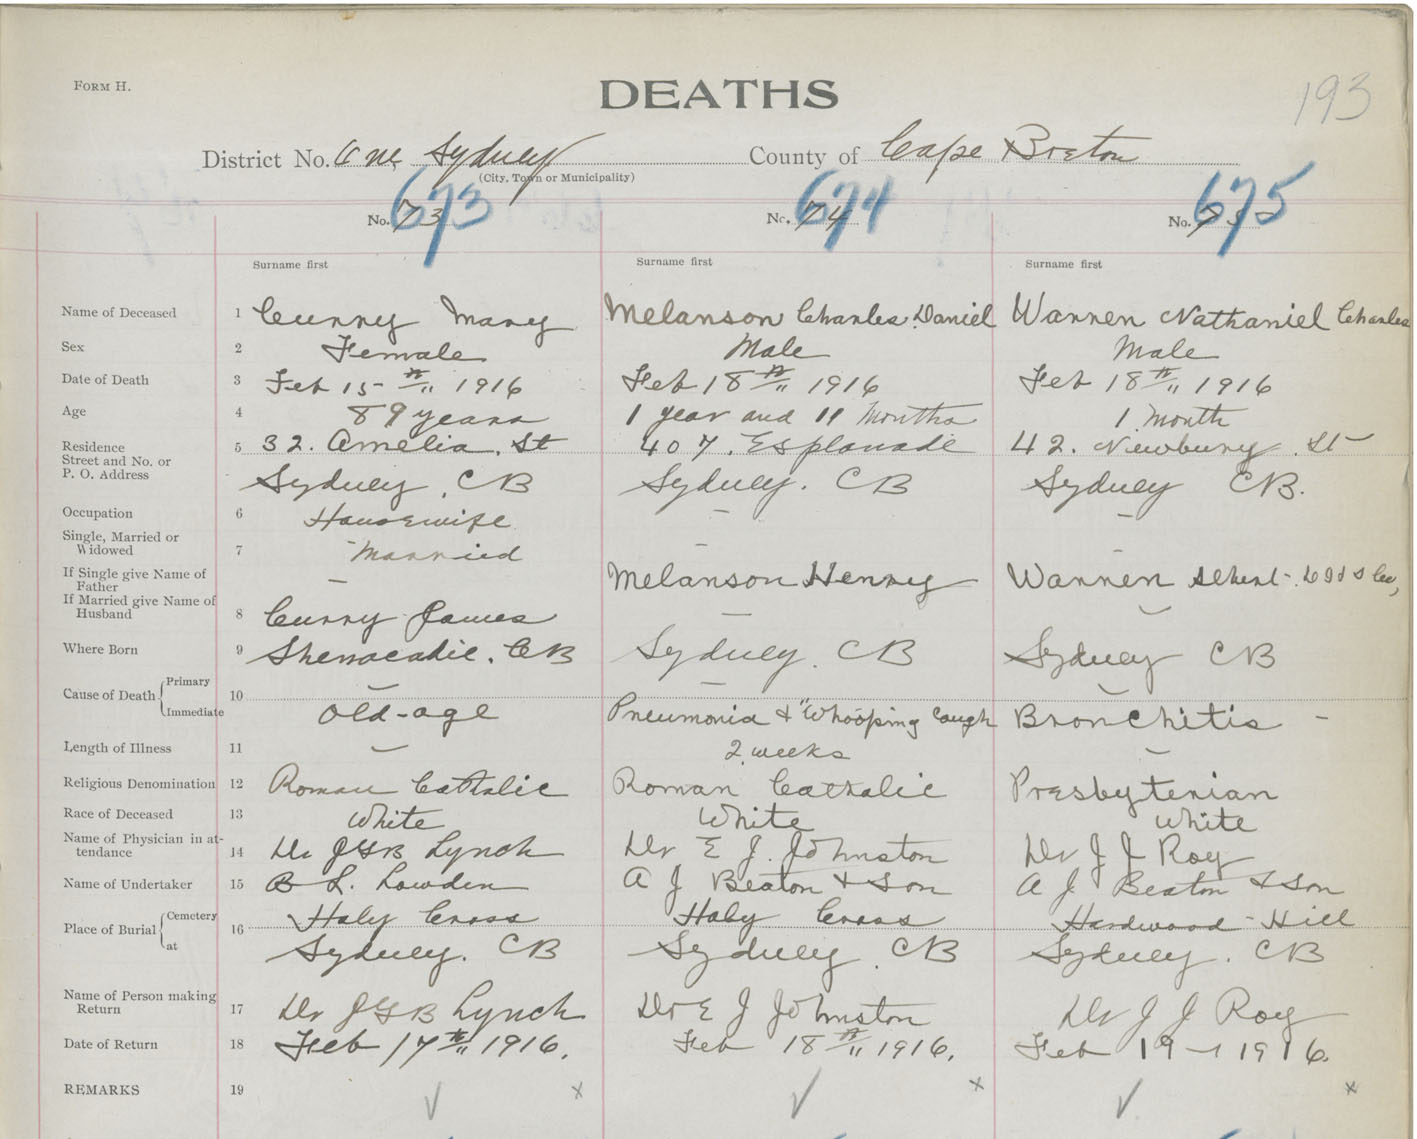 FORM H.
DEATHS
193
District No. One, Sydney
County of Cape Breton
(City, Town or Municipality)
673 674 675
No. 73 No. 74 No. 75
Surname first Surname first Surname first
Name of Deceased 1 Curry Mary Melanson Charles Daniel Warren Nathaniel Charles
Sex 2 Female Male Male
Date of Death 3 Feb 15th 1916 Feb 18th 1916 Feb 18th 1916
Age 4 89 years 1 year and 11 Months 1 month
Residence 5 32. Amelia. St 407. Esplanade 42. Newbury. St
Street and No. or
P. O. Address Sydney. CB Sydney. CB Sydney CB.
Occupation 6 Housewife - -
Single, Married or
Widowed 7 Married - -
If Single give Name of
Father - Melanson Henry Warren
If Married give Name of
Husband 8 Curry James - -
Where Born 9 Shenacadie. CB Sydney. CB Sydney CB
Cause of Death Primary 10 - - -
Immediate Old-age Pneumonia & "Whooping Cough Bronchitis -
Length of Illness 11 - 2 weeks -
Religious Denomination 12 Roman Catholic Roman Catholic Presbyterian
Race of Deceased 13 White White White
Name of Physician in at-
tendance 14 Dr J G B Lynch Dr E J. Johnston Dr J J Roy
Name of Undertaker 15 B L. Lowden A J Beaton & Son A J Beaton & Son
Place of Burial Cemetery 16 Holy Cross Holy Cross Hardwood-Hill
at Sydney. CB Sydney. CB Sydney. CB
Name of Person making
Return 17 Dr J G B Lynch Dr E J Johnston Dr J J Roy
Date of Return 18 Feb 17th 1916. Feb 18th 1916. Feb 19-1916.
REMARKS 19 ✓ x ✓ x ✓ x